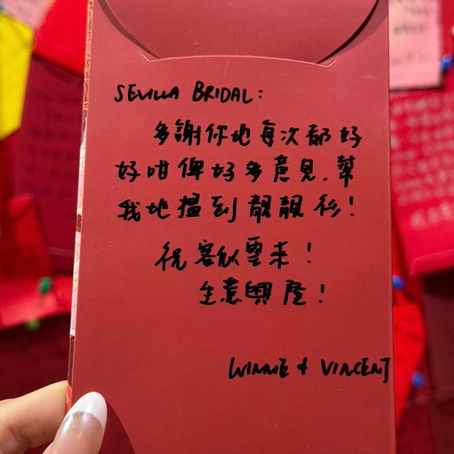 SEVILLA BRIDAL:
多謝你哋每次都好
好咁俾好多意見,幫
我哋搵到靚靚衫!
祝客似雲來!
生意興隆!
WINNIE & VINCENT